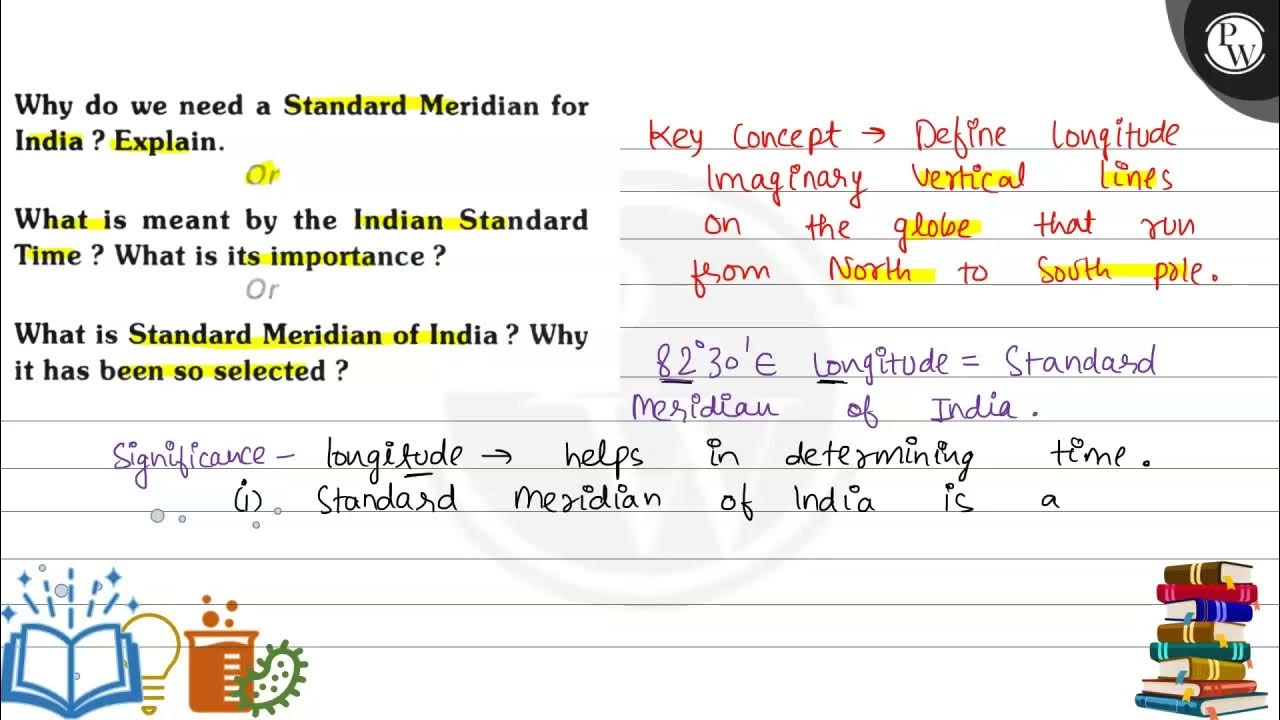 PW
Why do we need a Standard Meridian for
India ? Explain.
Or
What is meant by the Indian Standard
Time ? What is its importance ?
Or
What is Standard Meridian of India ? Why
it has been so selected ?
Key Concept → Define Longitude
Imaginary vertical lines
on the globe that run
from North to South pole.
82°30'E Longitude = Standard
Meridian of India.
Significance - longitude → helps in determining time.
(i) Standard Meridian of India is a